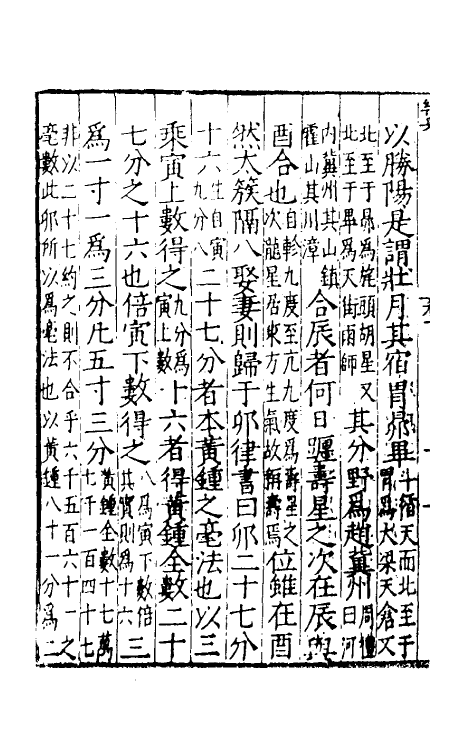 以勝陽是謂壯月其宿胃昴畢斗循天而北至于胃為大梁天倉又
北至于昴為旄頭胡星又北至于畢為天街雨師其分野為趙冀州周禮曰河
內冀州其山鎮霍山其川漳合辰者何日躔壽星之次在辰與
酉合也自軫九度至亢九度為壽星之次龍星居東方生氣故稱壽焉位雖在酉
然太簇隔八娶妻則歸于卯律書曰卯二十七分
十六生自寅九分八二十七分者本黃鍾之毫法也以三
乘寅上數得之九分為寅上數十六者得黃鍾全數二十
七分之十六也倍寅下數得之八為寅下數倍其實則為十六三
為一寸一為三分凡五寸三分黃鍾全數十七萬七千一百四十七
非以二十七約之則不合乎六千五百六十一之毫數此卯所以為毫法也以黃鍾八十一分為二